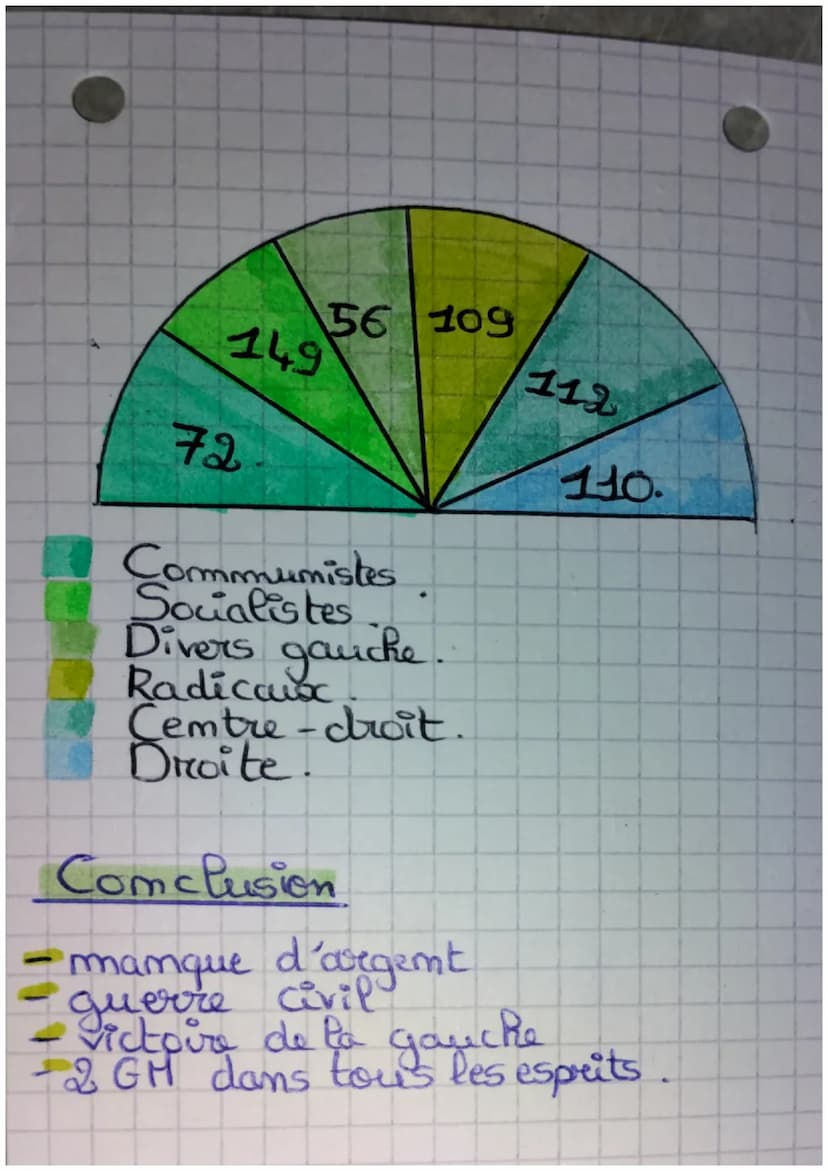 56
109
149
112
72.
110.
Communistes
Socialistes.
Divers gauche.
Radicaux.
Centre-droit.
Droite.
Conclusion
- manque d'argent
- guerre civil
- victoire de la gauche
- 2 GM dans tous les esprits.